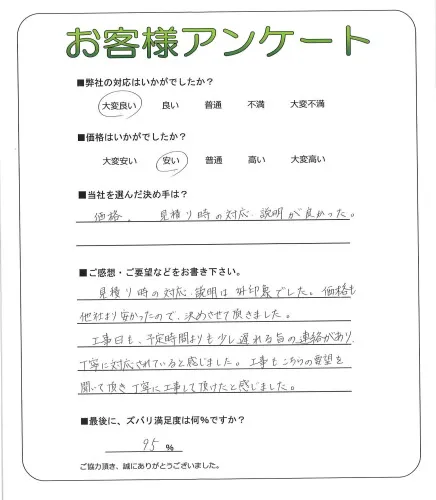 お客様アンケート
■弊社の対応はいかがでしたか?
大変良い 良い 普通 不満 大変不満
■価格はいかがでしたか?
大変安い 安い 普通 高い 大変高い
■当社を選んだ決め手は?
価格。 見積り時の対応・説明が良かった。
■ご感想・ご要望などをお書き下さい。
見積り時の対応・説明は好印象でした。価格も
他社より安かったので、決めさせて頂きました。
工事日も、予定時間よりも少し遅れる旨の連絡があり、
丁寧に対応されていると感じました。工事もこちらの要望を
聞いて頂き丁寧に工事して頂けたと感じました。
■最後に、ズバリ満足度は何%ですか?
95 %
ご協力頂き、誠にありがとうございました。